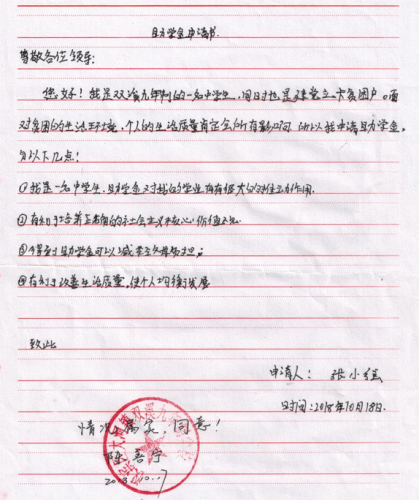 助学金申请书
尊敬各位领导:
您好!我是双溪九年制的一名中学生,同时也是建档立卡贫困户。面
对贫困的生活环境,个人的生活质量肯定会所有影响 所以我申请助学金,
有以下几点:
①我是一名中学生,助学金对我的学业有有很大的的推动作用.
②有利于培养正的社会主义核心价值观.
③得到助学金可以减轻父母负担;
④有利于改善生活质量,使个人均衡发展
致此
申请人: 张小
时间:2018年10月18日.
情况属实,同意!
双溪九年